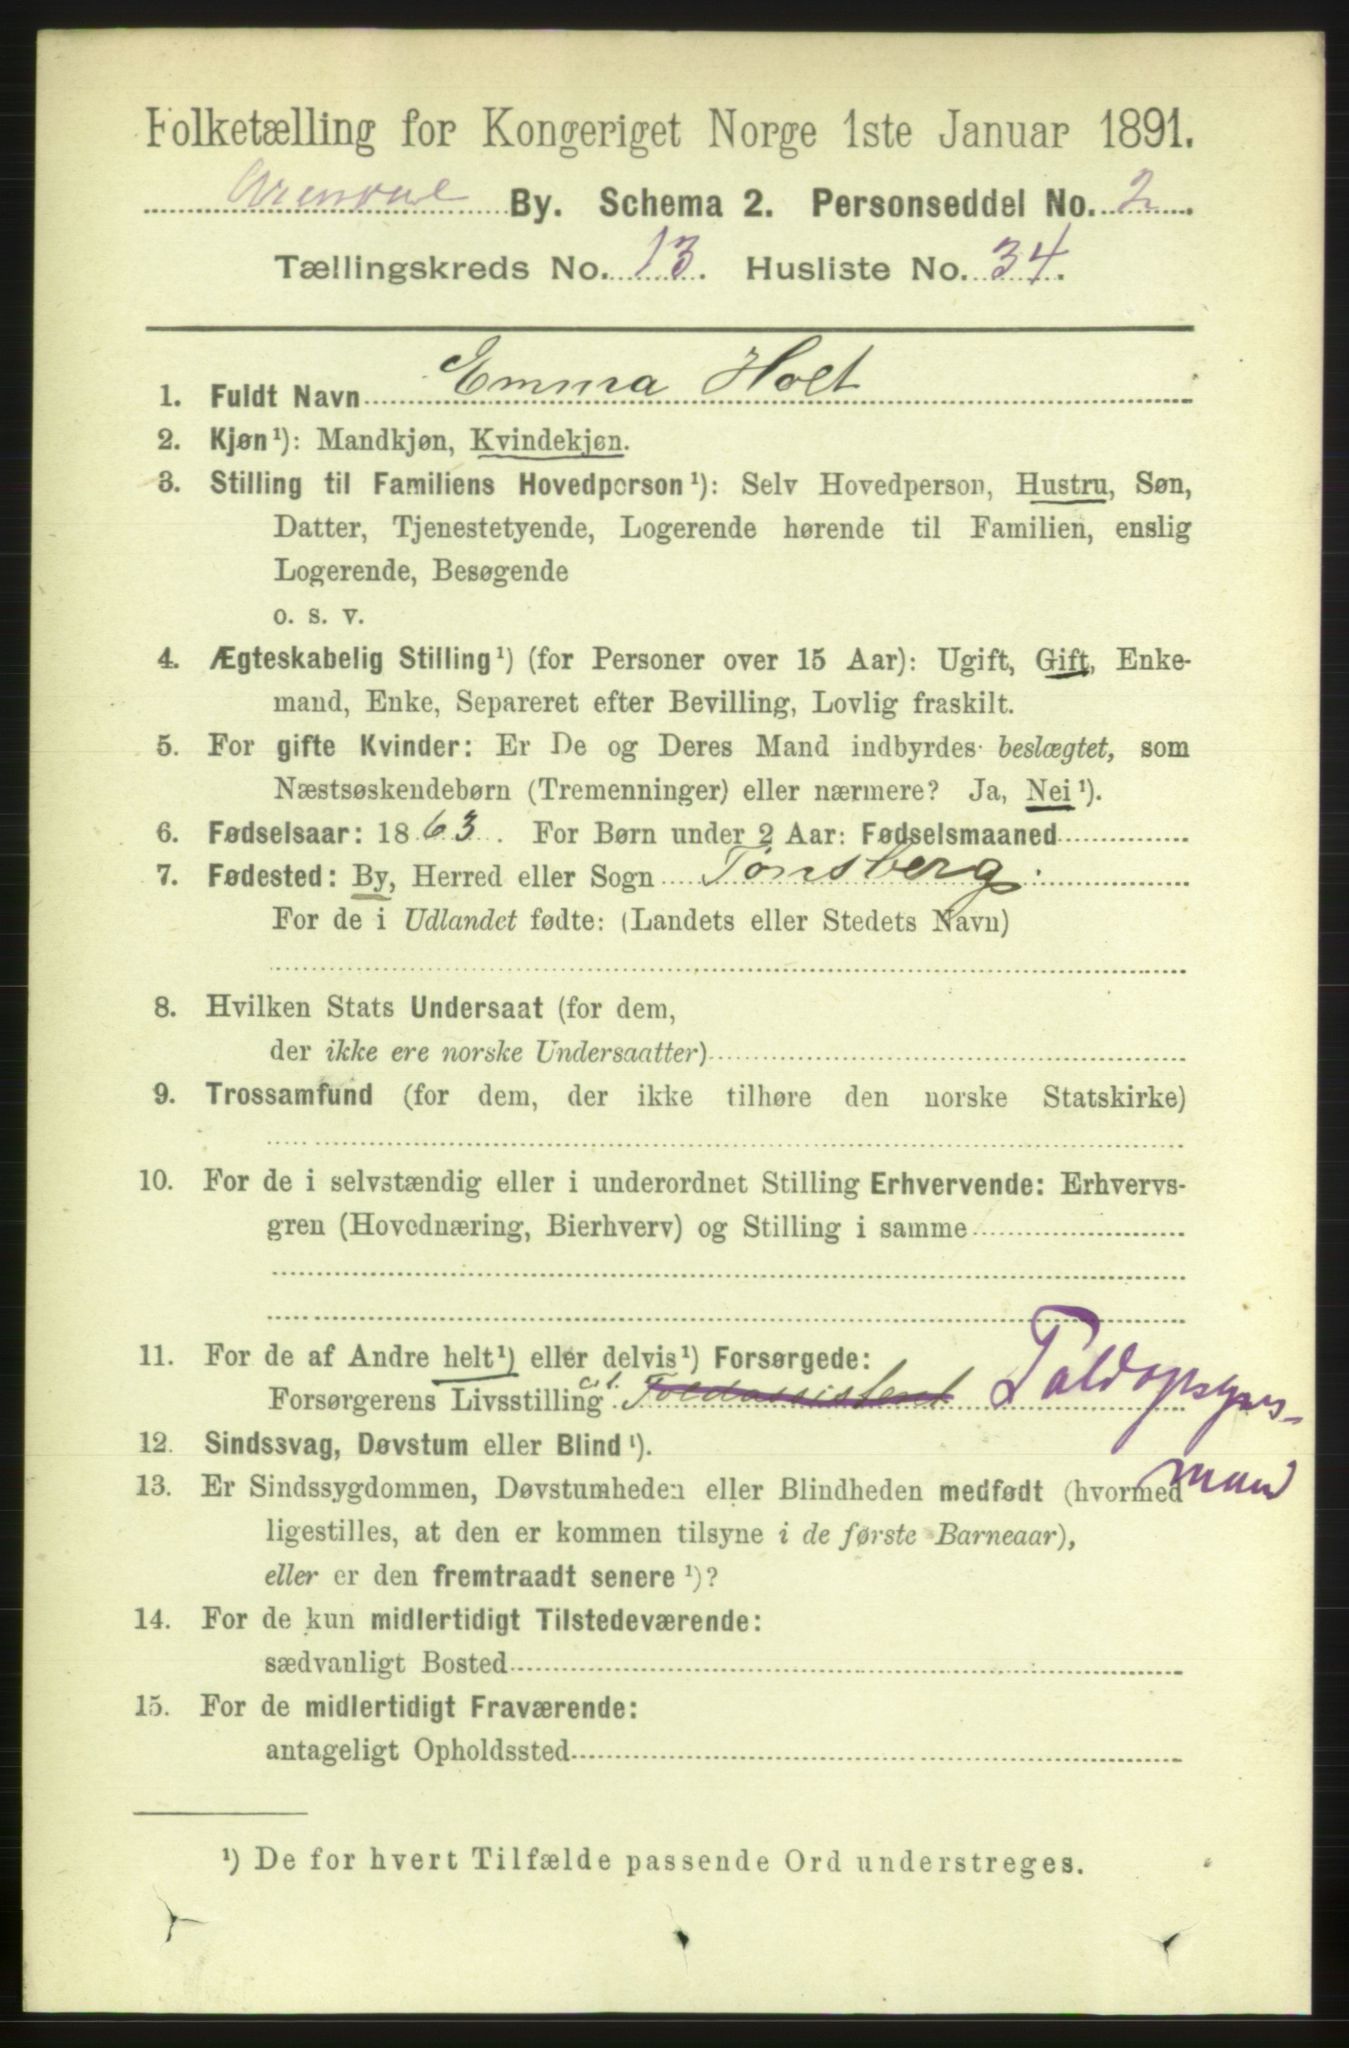 Folketælling for Kongeriget Norge 1ste Januar 1891.
Arendal By. Schema 2. Personseddel No. 2.
Tællingskreds No. 13. Husliste No. 34.
1. Fuldt Navn Emma Holt
2. Kjøn¹): Mandkjøn, Kvindekjøn.
3. Stilling til Familiens Hovedperson¹): Selv Hovedperson, Hustru, Søn,
Datter, Tjenestetyende, Logerende hørende til Familien, enslig
Logerende, Besøgende
o. s. v.
4. Ægteskabelig Stilling¹) (for Personer over 15 Aar): Ugift, Gift, Enke-
mand, Enke, Separeret efter Bevilling, Lovlig fraskilt.
5. For gifte Kvinder: Er De og Deres Mand indbyrdes beslægtet, som
Næstsøskendebørn (Tremenninger) eller nærmere? Ja, Nei¹).
6. Fødselsaar: 1863. For Børn under 2 Aar: Fødselsmaaned
7. Fødested: By, Herred eller Sogn Tønsberg
For de i Udlandet fødte: (Landets eller Stedets Navn)
8. Hvilken Stats Undersaat (for dem,
der ikke ere norske Undersaatter)
9. Trossamfund (for dem, der ikke tilhøre den norske Statskirke)
10. For de i selvstændig eller i underordnet Stilling Erhvervende: Erhvervs-
gren (Hovednæring, Bierhverv) og Stilling i samme
11. For de af Andre helt¹) eller delvis¹) Forsørgede:
Forsørgerens Livsstilling Toldassistent Toldopsyns-
mand
12. Sindssvag, Døvstum eller Blind¹).
13. Er Sindssygdommen, Døvstumheden eller Blindheden medfødt (hvormed
ligestilles, at den er kommen tilsyne i de første Barneaar),
eller er den fremtraadt senere¹)?
14. For de kun midlertidigt Tilstedeværende:
sædvanligt Bosted
15. For de midlertidigt Fraværende:
antageligt Opholdssted
¹) De for hvert Tilfælde passende Ord understreges.